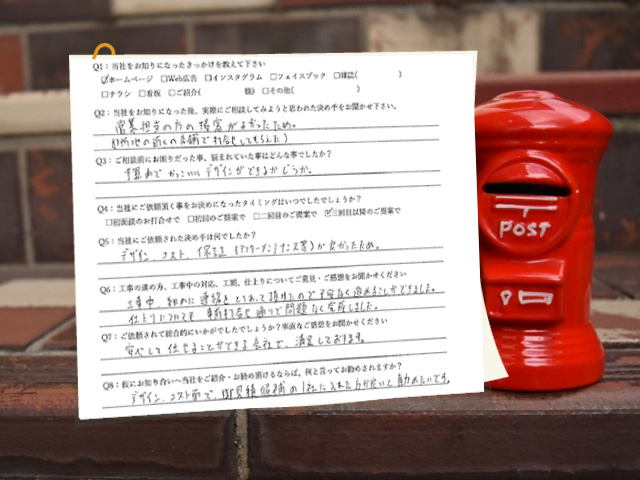 Q1：当社をお知りになったきっかけを教えて下さい
☑ホームページ □Web広告 □インスタグラム □フェイスブック □雑誌(　　　)
□チラシ □看板 □ご紹介(　　　様) □その他(　　　)
Q2：当社をお知りになった後、実際にご相談してみようと思われた決め手をお聞かせ下さい。
営業担当の方の接客がよかったため。
の近くの店舗で打合せしてもらえた)
Q3：ご相談前にお困りだった事、悩まれていた事はどんな事でしたか？
予算内でかっこいいデザインができるかどうか。
Q4：当社にご依頼頂く事をお決めになったタイミングはいつでしたでしょうか？
□初面談のお打合せで □初回のご提案で □二回目のご提案で ☑三回目以降のご提案で
Q5：当社にご依頼された決め手は何でしたか？
デザイン、コスト、保証(アフターメンテナンス等)が良かったため。
Q6：工事の進め方、工事中の対応、工期、仕上りについてご意見・ご感想をお聞かせください
工事中、細めに連絡をとりあって頂けたので不安なく進めることができました。
仕上りについても事前打合せ通りで問題なく完成しました。
Q7：ご依頼されて総合的にいかがでしたでしょうか？率直なご感想をお聞かせください
安心して任せることができる会社で、満足しております。
Q8：仮にお知り合いへ当社をご紹介・お勧め頂けるならば、何と言ってお勧めされますか？
デザイン、コスト面で、御見積候補の1社に入れた方が良いと勧めたいです。
〒
POST